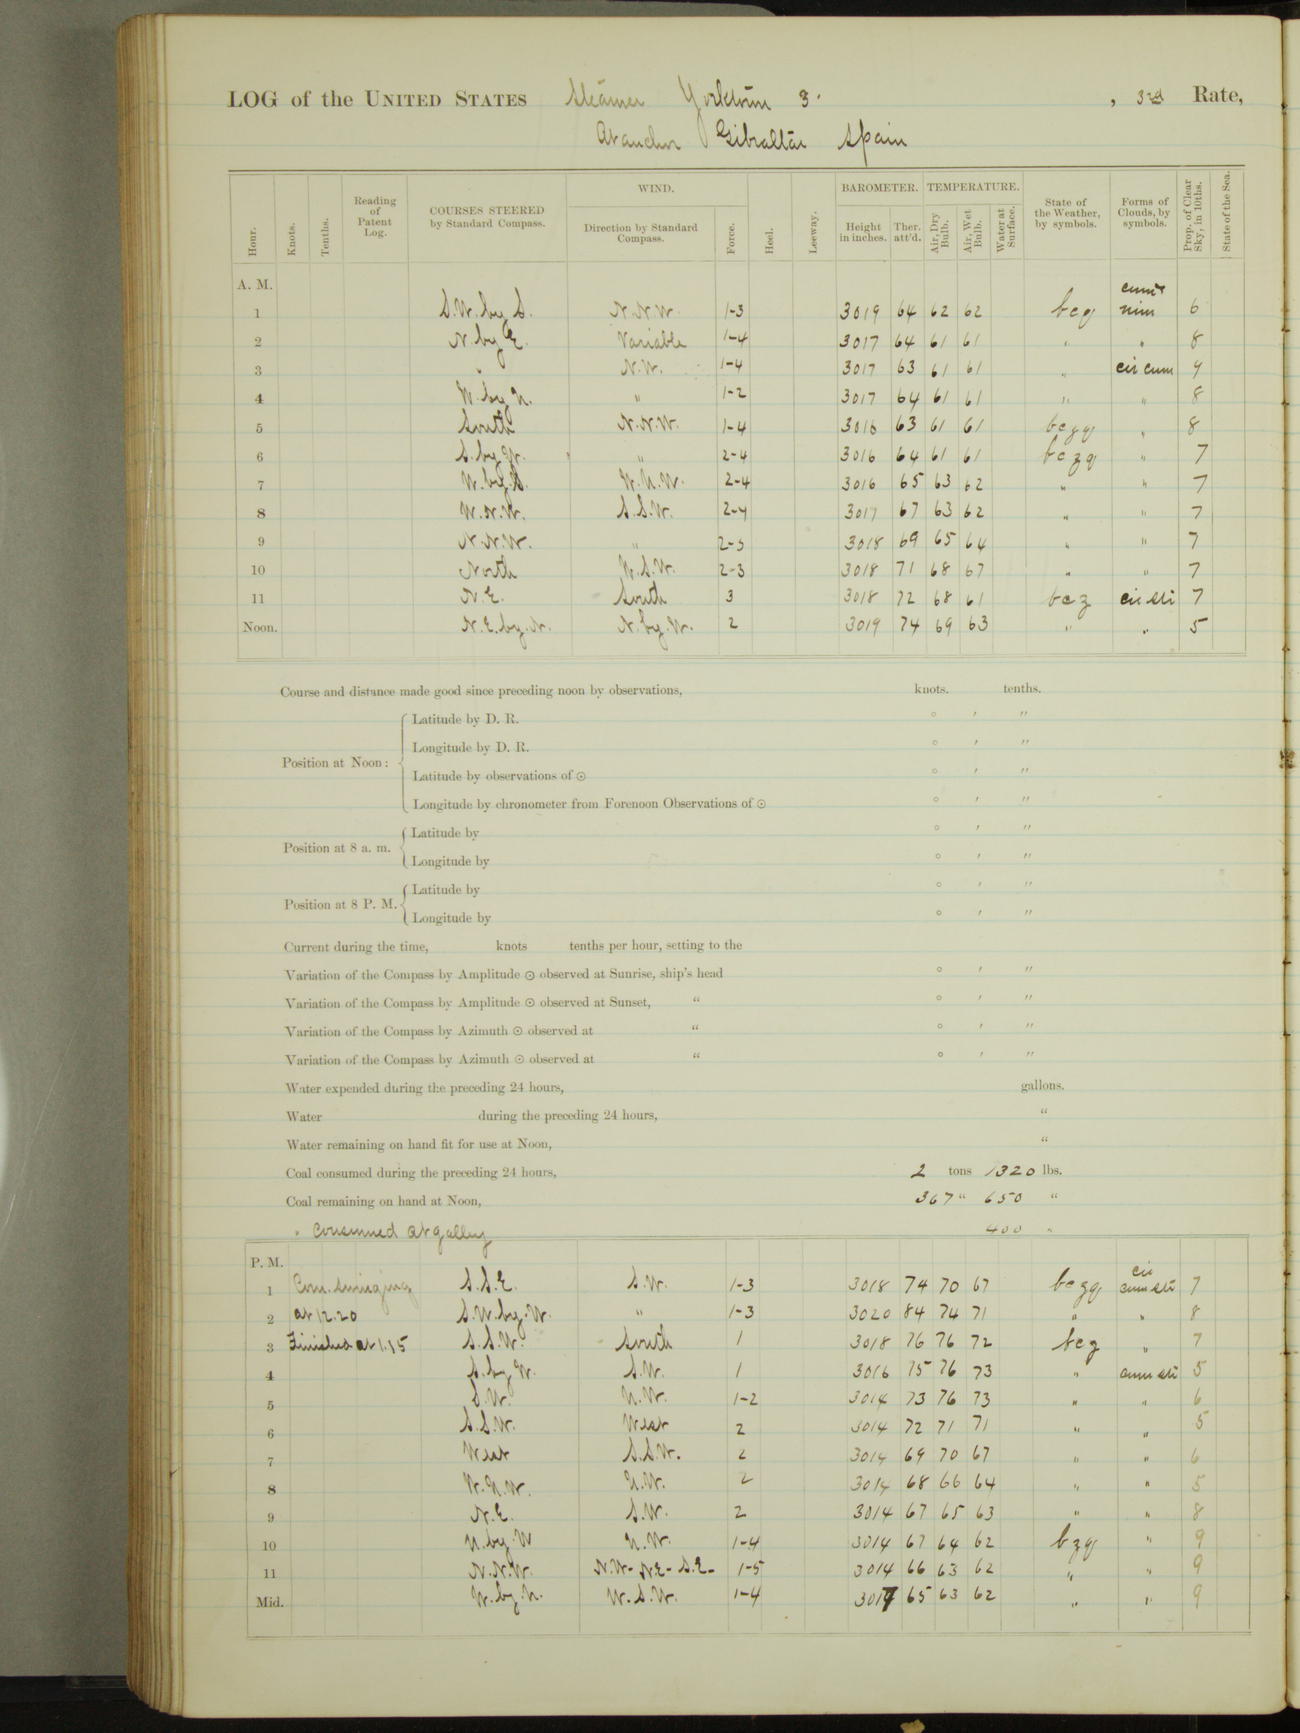 LOG of the UNITED STATES Steamer Yorktown 3. , 3rd Rate,
At anchor Gibraltar Spain
Hour. Knots. Tenths. Reading of Patent Log. COURSES STEERED by Standard Compass. WIND. Direction by Standard Compass. Force. Heel. Leeway. BAROMETER. Height in inches. Ther. att'd. TEMPERATURE. Air, Dry Bulb. Air, Wet Bulb. Water at Surface. State of the Weather, by symbols. Forms of Clouds, by symbols. Prop. of Clear Sky, in 10ths. State of the Sea.
A. M.
1 S.W. by S. N.N.W. 1-3 3019 64 62 62 bcq cum nim 6
2 N. by E. Variable 1-4 3017 64 61 61 " " 8
3 " N.W. 1-4 3017 63 61 61 " cir cum 9
4 W. by N. " 1-2 3017 64 61 61 " " 8
5 South N.N.W. 1-4 3016 63 61 61 bczq " 8
6 S. by W. " 2-4 3016 64 61 61 bczq " 7
7 W. by S. W.N.W. 2-4 3016 65 63 62 " " 7
8 W.N.W. S.S.W. 2-4 3017 67 63 62 " " 7
9 N.N.W. " 2-3 3018 69 65 64 " " 7
10 North W.S.W. 2-3 3018 71 68 67 " " 7
11 N.E. South 3 3018 72 68 61 bcz cir str 7
Noon. N.E. by N. N. by W. 2 3019 74 69 63 " " 5
Course and distance made good since preceding noon by observations, knots. tenths.
Position at Noon:
Latitude by D. R. ° ′ ″
Longitude by D. R. ° ′ ″
Latitude by observations of ⊙ ° ′ ″
Longitude by chronometer from Forenoon Observations of ⊙ ° ′ ″
Position at 8 a. m.
Latitude by ° ′ ″
Longitude by ° ′ ″
Position at 8 P. M.
Latitude by ° ′ ″
Longitude by ° ′ ″
Current during the time, knots tenths per hour, setting to the
Variation of the Compass by Amplitude ⊙ observed at Sunrise, ship's head ° ′ ″
Variation of the Compass by Amplitude ⊙ observed at Sunset, " ° ′ ″
Variation of the Compass by Azimuth ⊙ observed at " ° ′ ″
Variation of the Compass by Azimuth ⊙ observed at " ° ′ ″
Water expended during the preceding 24 hours, gallons.
Water during the preceding 24 hours, "
Water remaining on hand fit for use at Noon, "
Coal consumed during the preceding 24 hours, 2 tons 1320 lbs.
Coal remaining on hand at Noon, 367 " 650 "
" Consumed at galley 400 "
P. M.
1 Com. swinging S.S.E. S.W. 1-3 3018 74 70 67 bczq cir cum str 7
2 at 12.20 S.W. by W. " 1-3 3020 84 74 71 " " 8
3 Finished at 1.15 S.S.W. South 1 3018 76 76 72 bcz " 7
4 S. by W. S.W. 1 3016 75 76 73 " cum str 5
5 S.W. N.W. 1-2 3014 73 76 73 " " 6
6 S.S.W. West 2 3014 72 71 71 " " 5
7 West S.S.W. 2 3014 69 70 67 " " 6
8 W.N.W. N.W. 2 3014 68 66 64 " " 5
9 N.E. S.W. 2 3014 67 65 63 " " 8
10 N. by W N.W. 1-4 3014 67 64 62 bzq " 9
11 N.N.W. N.W- N.E- S.E- 1-5 3014 66 63 62 " " 9
Mid. W. by N. W.S.W. 1-4 3017 65 63 62 " " 9